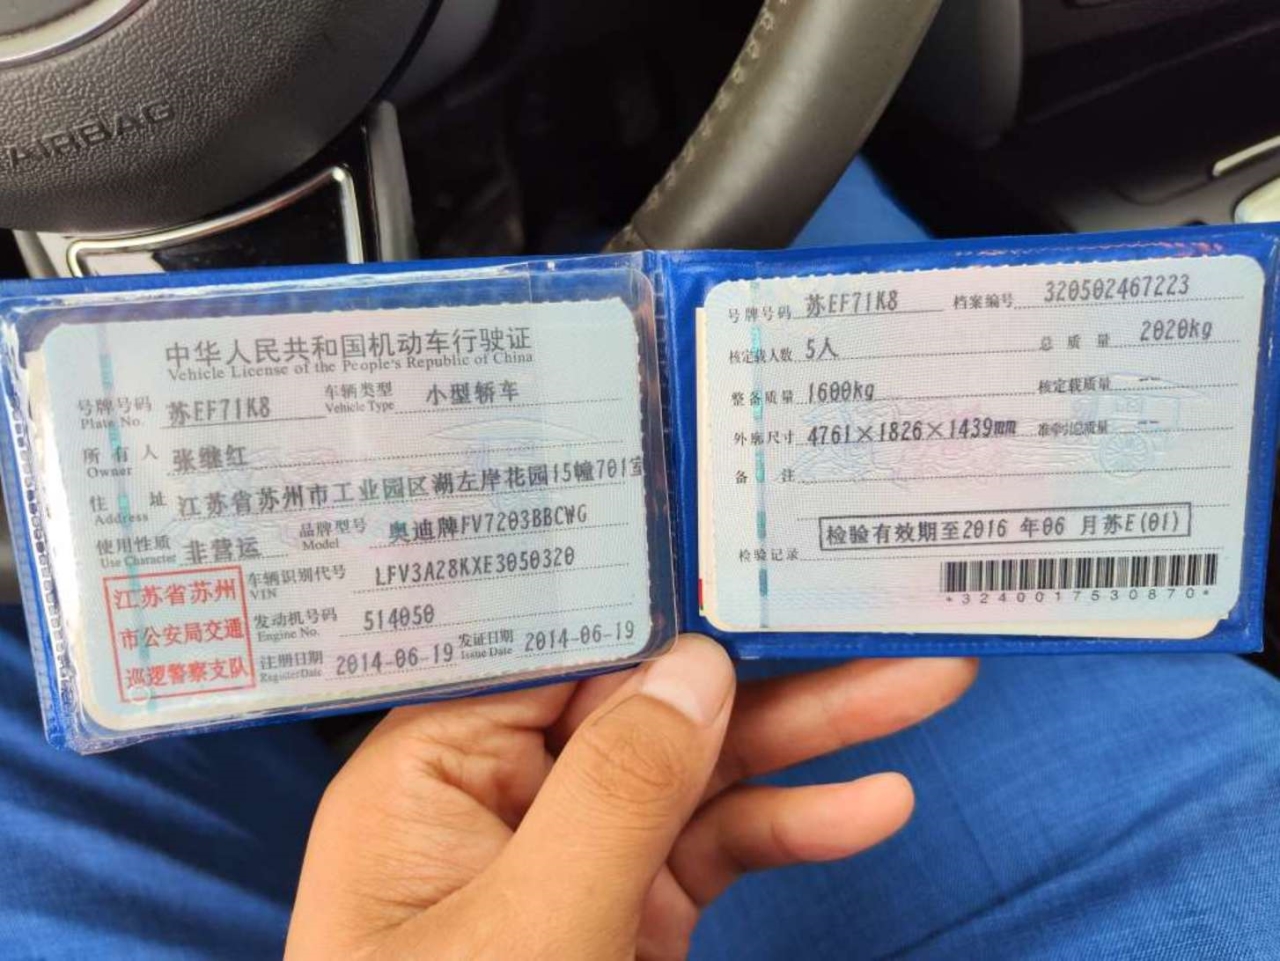 AIRBAG
中华人民共和国机动车行驶证
Vehicle License of the People's Republic of China
号牌号码 苏EF71K8 车辆类型 小型轿车
Plate No. Vehicle Type
所有人 张继红
Owner
住址 江苏省苏州市工业园区湖左岸花园15幢701室
Address
使用性质 非营运 品牌型号 奥迪牌FV7203BBCWG
Use Character Model
江苏省苏州
市公安局交通
巡逻警察支队
车辆识别代号 LFV3A28KXE3050320
VIN
发动机号码 514050
Engine No.
注册日期 2014-06-19 发证日期 2014-06-19
Register Date Issue Date
号牌号码 苏EF71K8 档案编号 320502467223
核定载人数 5人 总质量 2020kg
整备质量 1600kg 核定载质量 --
外廓尺寸 4761×1826×1439mm 准牵引总质量 --
备注
检验有效期至2016 年06 月苏E(01)
检验记录
*3240017530870*